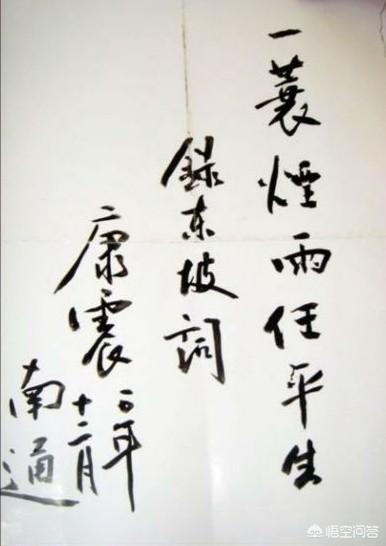 一蓑煙雨任平生
録东坡詞
康震
一〇年
十二月
南通
悟空问答